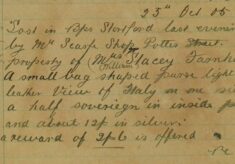 23rd Oct 05
Lost in Bps Stortford last evening
by Mr Scarfe Shop Potter Street
property of (Mrs William) Stacey Farnham
A small bag shaped purse light
leather View of Italy on one side
a half sovereign in inside p
and about 12/- in silver.
a reward of 2/6 is offered